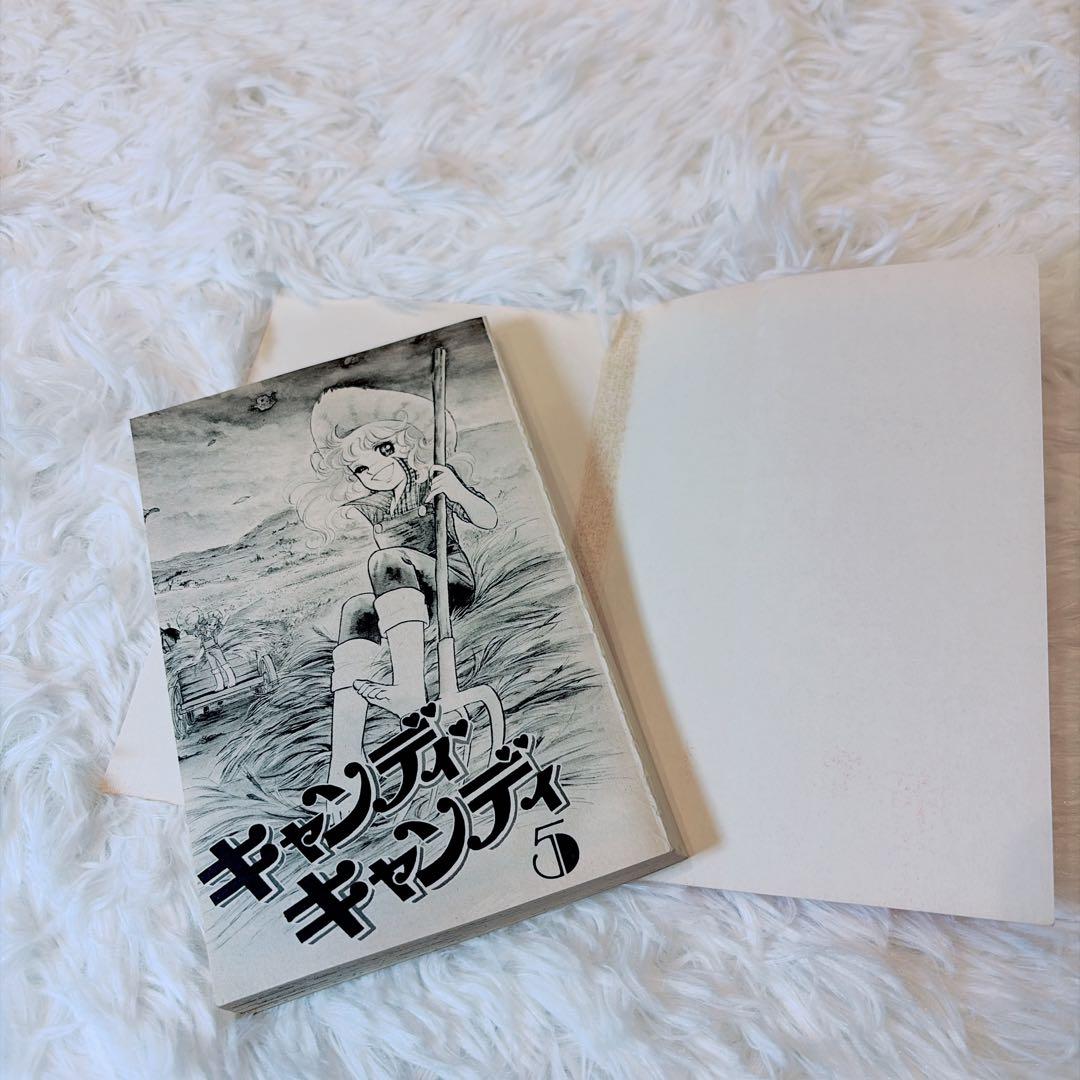 キャンディ
キャンディ
5